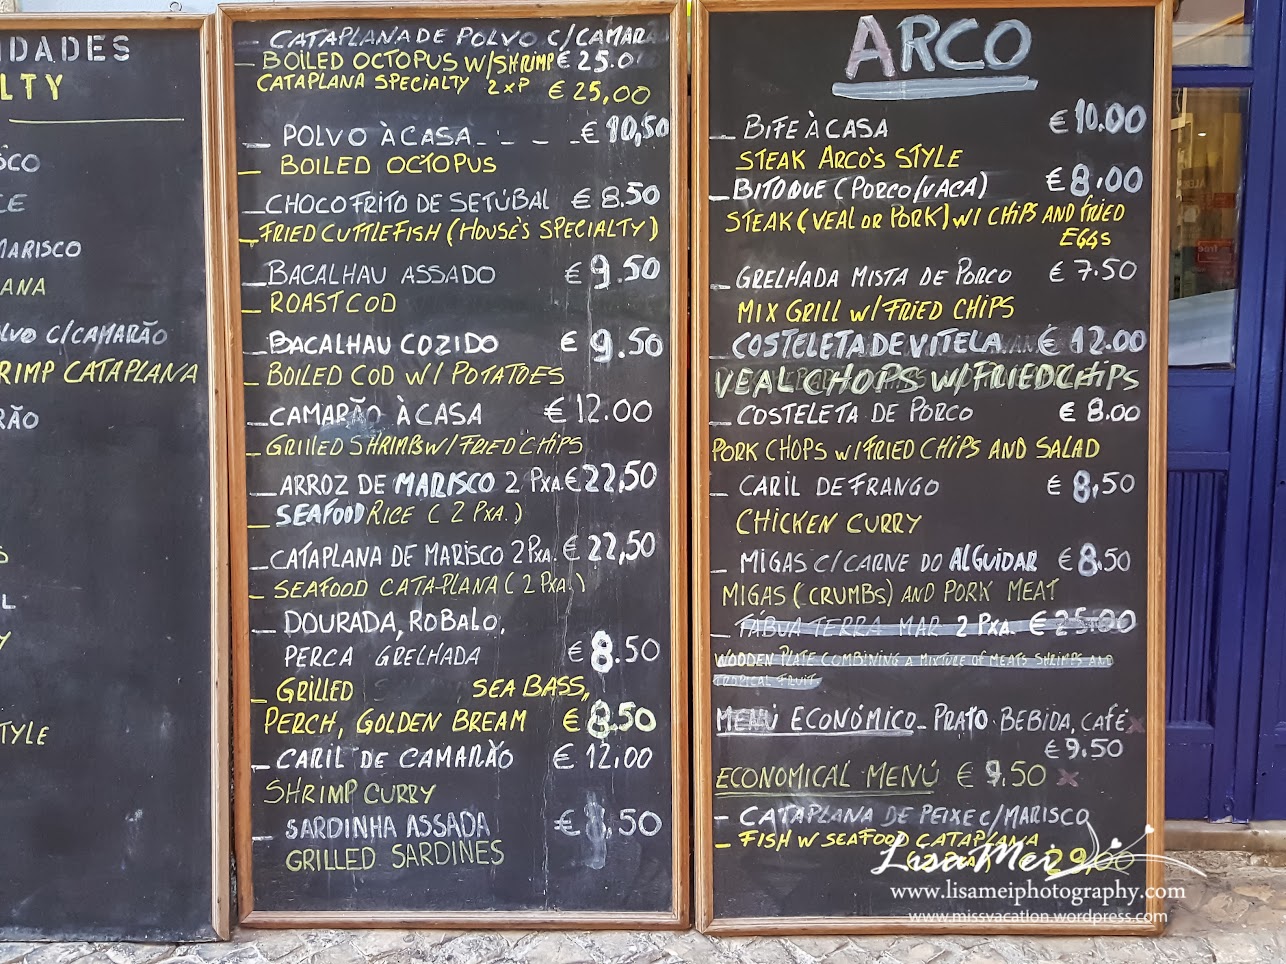 IDADES
LTY
MARISCO
ANA
C/CAMARÃO
RIMP CATAPLANA
RÃO
TYLE
CATAPLANA DE POLVO C/CAMAR
BOILED OCTOPUS W/SHRIMP € 25.0
CATAPLANA SPECIALTY 2xP € 25,00
POLVO À CASA - - - € 10,50
BOILED OCTOPUS
CHOCO FRITO DE SETÚBAL € 8.50
FRIED CUTTLEFISH (HOUSE'S SPECIALTY)
BACALHAU ASSADO € 9.50
ROAST COD
BACALHAU COZIDO € 9.50
BOILED COD W/ POTATOES
CAMARÃO À CASA € 12.00
GRILLED SHRIMPS W/ FRIED CHIPS
ARROZ DE MARISCO 2 PXA. € 22,50
SEAFOOD RICE (2 PXA.)
CATAPLANA DE MARISCO 2 PXA. € 22,50
SEAFOOD CATAPLANA (2 PXA.)
DOURADA, ROBALO,
PERCA GRELHADA € 8.50
GRILLED SEA BASS,
PERCH, GOLDEN BREAM € 8.50
CARIL DE CAMARÃO € 12,00
SHRIMP CURRY
SARDINHA ASSADA € ,50
GRILLED SARDINES
ARCO
BIFE À CASA € 10.00
STEAK ARCO'S STYLE
BITOQUE (PORCO/VACA) € 8.00
STEAK (VEAL OR PORK) W/ CHIPS AND FRIED
EGGS
GRELHADA MISTA DE PORCO € 7.50
MIX GRILL W/ FRIED CHIPS
COSTELETA DE VITELA € 12.00
VEAL CHOPS W/ FRIED CHIPS
COSTELETA DE PORCO € 8.00
PORK CHOPS W/ FRIED CHIPS AND SALAD
CARIL DE FRANGO € 8,50
CHICKEN CURRY
MIGAS C/ CARNE DO ALGUIDAR € 8.50
MIGAS (CRUMBS) AND PORK MEAT
TÁBUA TERRA MAR 2 PXA. € 25.00
WOODEN PLATE COMBINING A MIXTURE OF MEATS SHRIMPS AND
TROPICAL FRUIT.
MENÚ ECONÓMICO - PRATO. BEBIDA, CAFÉ
€ 9.50
ECONOMICAL MENÚ € 9.50 x
- CATAPLANA DE PEIXE C/MARISCO
- FISH W SEAFOOD CATAPLANA
29,00
Lisa Mei
www.lisameiphotography.com
www.missvacation.wordpress.com